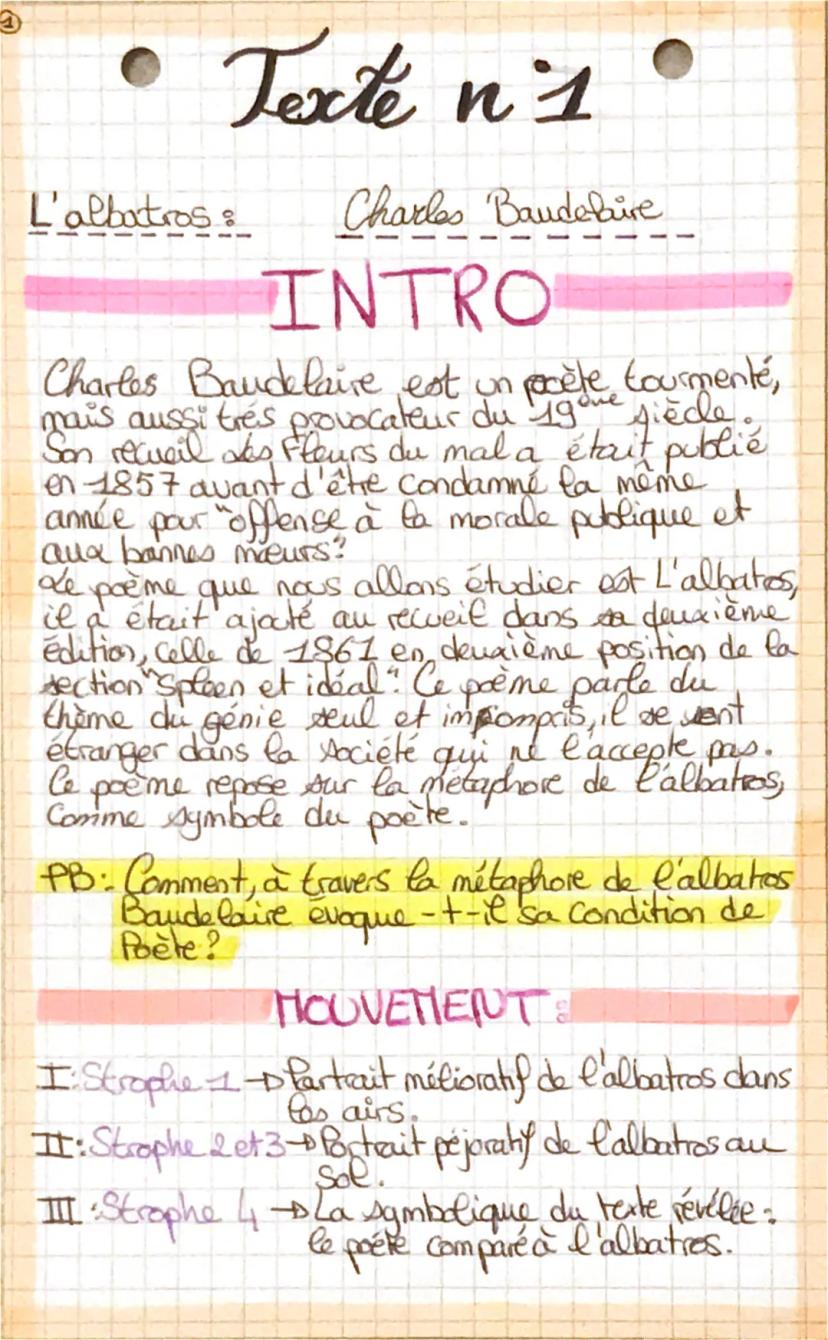 1
Texte n°1
L'albatros : Charles Baudelaire
INTRO
Charles Baudelaire est un poète tourmenté,
mais aussi très provocateur du 19ème siècle.
Son recueil Les Fleurs du mal a était publié
en 1857 avant d'être condamné la même
année pour "offense à la morale publique et
aux bonnes mœurs".
Le poème que nous allons étudier est L'albatros,
il a était ajouté au recueil dans sa deuxième
édition, celle de 1861 en deuxième position de la
section "Spleen et idéal". Ce poème parle du
thème du génie seul et incompris, il se sent
étranger dans la société qui ne l'accepte pas.
Ce poème repose sur la métaphore de l'albatros,
comme symbole du poète.
PB : Comment, à travers la métaphore de l'albatros
Baudelaire évoque-t-il sa condition de
Poète ?
MOUVEMENT :
I : Strophe 1 → Portrait mélioratif de l'albatros dans
les airs.
II : Strophe 2 et 3 → Portrait péjoratif de l'albatros au
sol.
III : Strophe 4 → La symbolique du texte révélée :
le poète comparé à l'albatros.